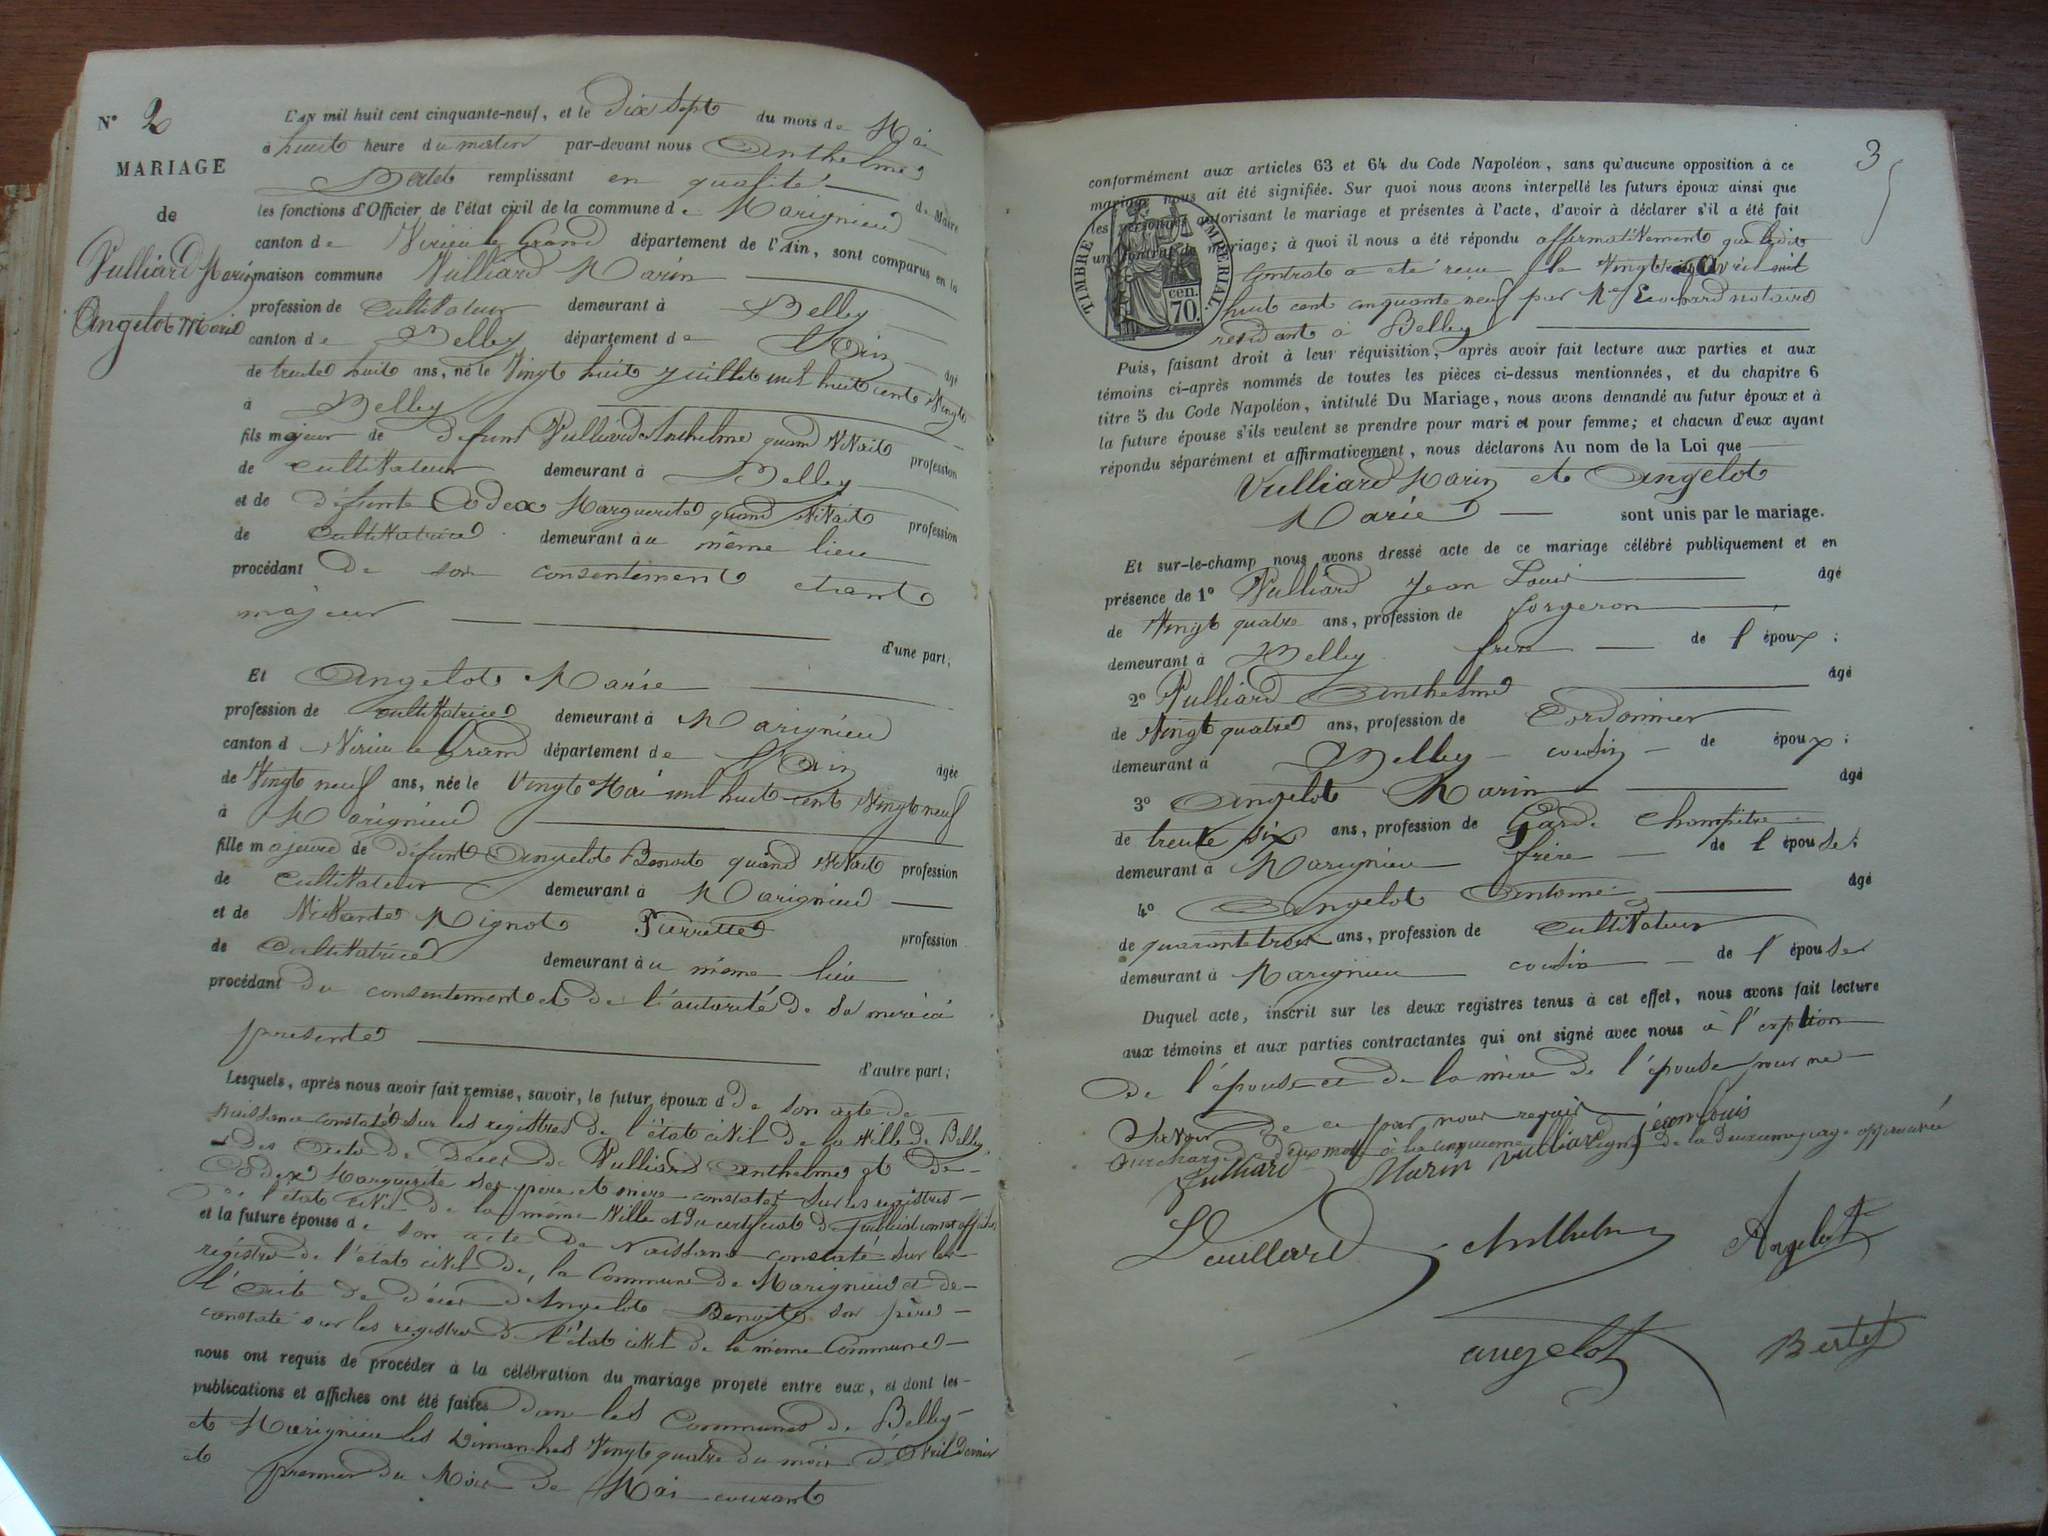 N° 2
MARIAGE
de
Vulliard Marin
Angelot Marie
L'AN mil huit cent cinquante-neuf, et le dix sept du mois de Mai
à huit heure du matin par-devant nous Anthelme
Bertet remplissant en qualité de Maire
les fonctions d'Officier de l'état civil de la commune de Marignieu
canton de Virieu le Grand département de l'Ain, sont comparus en la
maison commune Vulliard Marin
profession de cultivateur demeurant à Belley
canton de Belley département de l'Ain âgé
de trente huit ans, né le Vingt huit juillet mil huit cent Vingt
à Belley
fils majeur de défunt Vulliard Anthelme quand vivait profession
de cultivateur demeurant à Belley
et de défunte Codex Marguerite quand vivait profession
de cultivatrice demeurant au même lieu
procédant de son consentement étant
majeur
d'une part;
Et Angelot Marie
profession de cultivatrice demeurant à Marignieu
canton d Virieu le Grand département de l'Ain âgée
de Vingt neuf ans, née le Vingt Mai mil huit cent Vingt neuf
à Marignieu
fille majeure de défunt Angelot Benoit quand vivait profession
de cultivateur demeurant à Marignieu
et de Vivante Mignot Pierrette profession
de Cultivatrice demeurant au même lieu
procédant du consentement et de l'autorité de sa mère ici
présente
d'autre part;
Lesquels, après nous avoir fait remise, savoir, le futur époux d de son acte de
naissance constaté sur les registres de l'état civil de la Ville de Belley
des acte de décès de Vulliard Anthelme et de
Codex Marguerite ses père et mère constatés sur les registres
de l'état civil de la même Ville et du certificat de publication et affiches
et la future épouse de son acte de Naissance constaté sur les
registres de l'état civil de la Commune de Marignieu et de
l'acte de décès d'Angelot Benoit son père
constaté sur les registres de l'état civil de la même Commune
nous ont requis de procéder à la célébration du mariage projeté entre eux, et dont les
publications et affiches ont été faites dans les Communes de Belley
et Marignieu les Dimanches Vingt quatre du mois d'Avril dernier
et premier du Mois de Mai courant
3
conformément aux articles 63 et 64 du Code Napoléon, sans qu'aucune opposition à ce
mariage nous ait été signifiée. Sur quoi nous avons interpellé les futurs époux ainsi que
les personnes autorisant le mariage et présentes à l'acte, d'avoir à déclarer s'il a été fait
un contrat de mariage; à quoi il nous a été répondu affirmativement que ledit
TIMBRE IMPÉRIAL
70. cen.
Contrat a été reçu le Vingt Avril mil
huit cent cinquante neuf par Me notaire
résidant à Belley
Puis, faisant droit à leur réquisition, après avoir fait lecture aux parties et aux
témoins ci-après nommés de toutes les pièces ci-dessus mentionnées, et du chapitre 6
titre 5 du Code Napoléon, intitulé Du Mariage, nous avons demandé au futur époux et à
la future épouse s'ils veulent se prendre pour mari et pour femme; et chacun d'eux ayant
répondu séparément et affirmativement, nous déclarons Au nom de la Loi que
Vulliard Marin et Angelot
Marie sont unis par le mariage.
Et sur-le-champ nous avons dressé acte de ce mariage célébré publiquement et en
présence de 1° Vulliard Jean Louis âgé
de Vingt quatre ans, profession de forgeron
demeurant à Belley frère de l époux;
2° Vulliard Anthelme âgé
de Vingt quatre ans, profession de Cordonnier
demeurant à Belley cousin de époux;
3° Angelot Marin âgé
de trente six ans, profession de Garde Champêtre
demeurant à Marignieu frère de l épouse;
4° Angelot Antoine âgé
de quarante trois ans, profession de Cultivateur
demeurant à Marignieu cousin de l épouse
Duquel acte, inscrit sur les deux registres tenus à cet effet, nous avons fait lecture
aux témoins et aux parties contractantes qui ont signé avec nous à l'exption
de l'épouse et de la mère de l'épouse pour ne
savoir de ce par nous requis jean louis
surcharge de deux mots à la cinquième ligne de la deuxième page approuvée
Vulliard Marin vulliard
Vuillard Anthelme Angelot
angelot Bertet